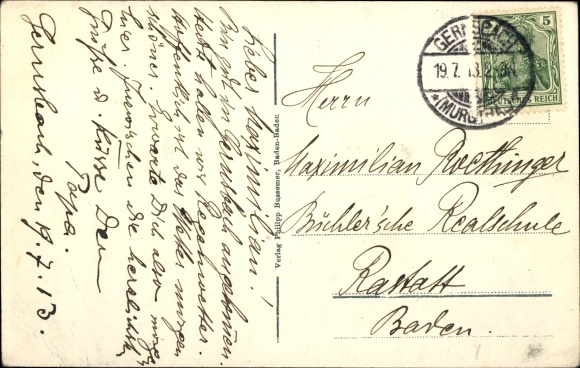 Lieber Maximilian!
Bin gut in Gernsbach angekommen.
Heute hatten wir Regenwetter.
Hoffentlich ist das Wetter morgen
schöner. Erwarte Dich also morgen
hier. Inzwischen die herzlichsten
Grüße u. Küsse Dein
Papa.
Gernsbach, den 19.7.13.
Verlag Philipp Bussemer, Baden-Baden
GERNSBACH
19.7.13.
* (MURGTHAL)
5
DEUTSCHES REICH
Herrn
Maximilian Roethinger
Büchler'sche Realschule
Rastatt
Baden.